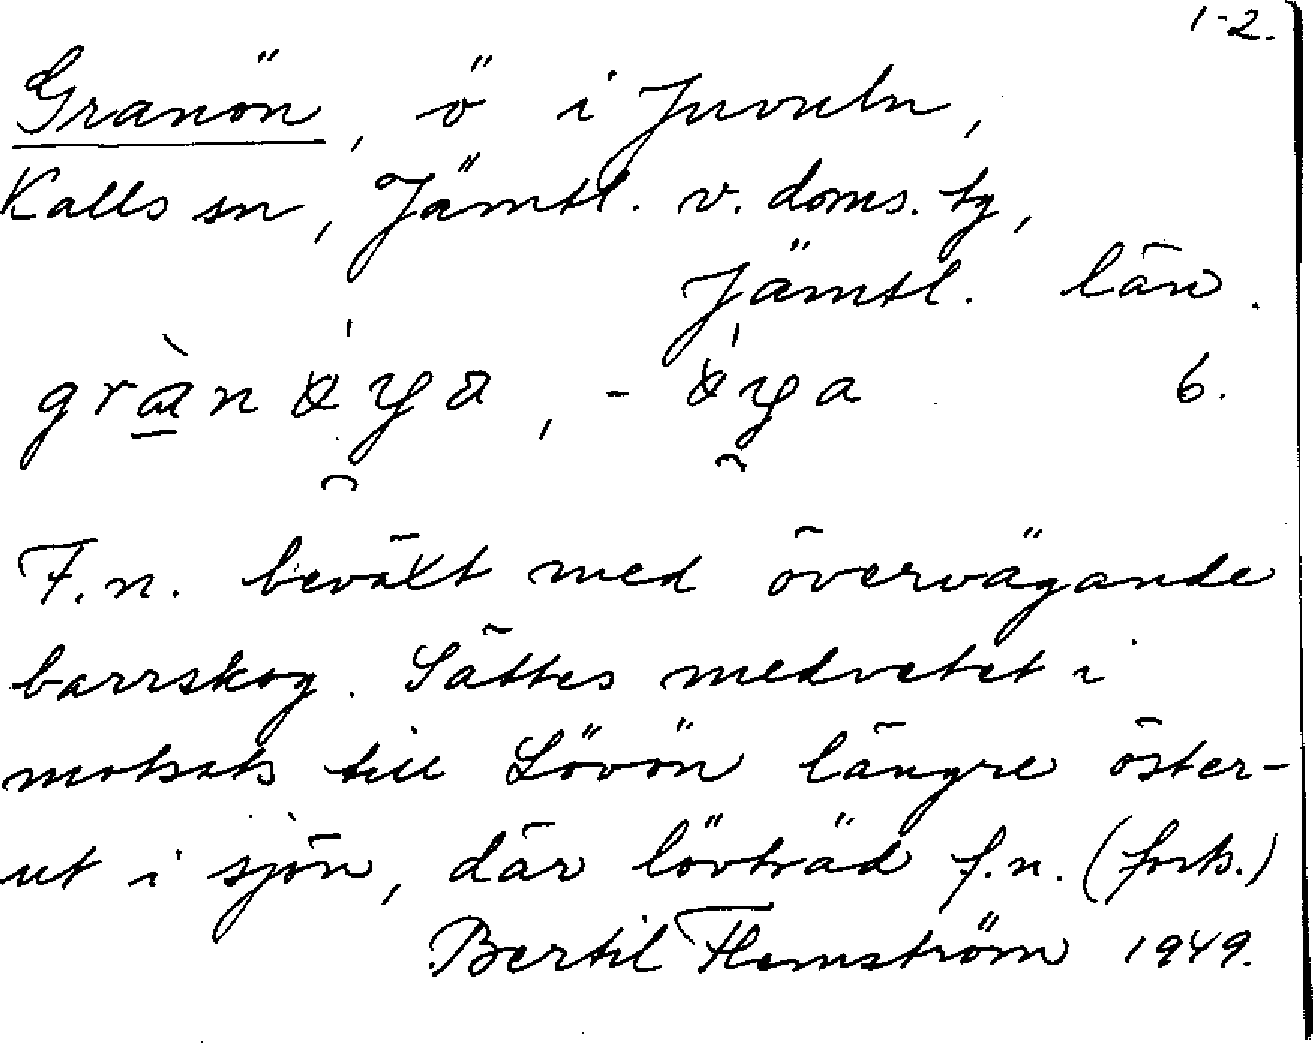 1-2.
Granön, ö i Juvuln,
Kalls sn, Jämtl. v. doms. tg,
Jämtl. län.
6.
F.n. beväxt med övervägande
barrskog. Sättes medvetet i
motsats till Lövön längre öster-
ut i sjön, där lövträd f.n. (forts.)
Bertil Flemström 1949.